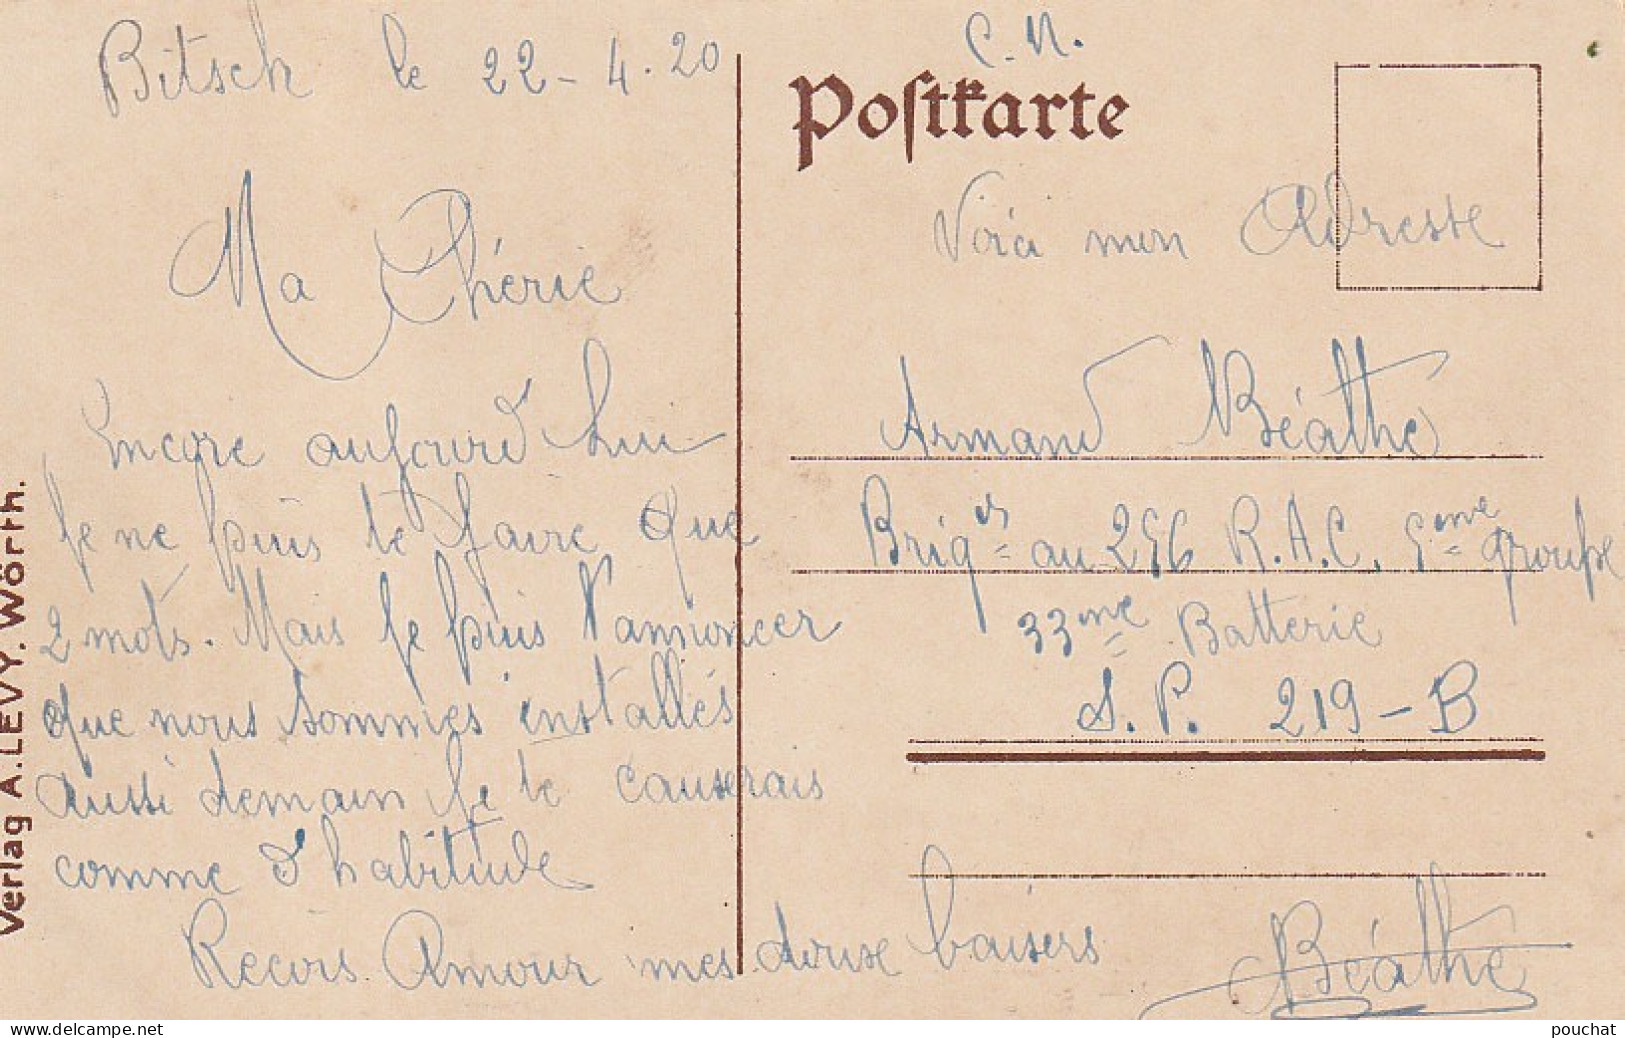 Bitsch le 22-4.20
Ma Chérie
Encore aujourd'hui
je ne puis te faire que
2 mots. Mais je puis t'annoncer
que nous sommes installés
aussi demain je te causerais
comme d'habitude
Recois Amour mes douse baisers
Béathe
C.N.
Postkarte
Voici mon Adresse
Armand Béathe
Brig er au 256 R.A.C. 5eme groupe
33me Batterie
S.P. 219-B
Verlag A.LEVY. Wörth.
pouchat